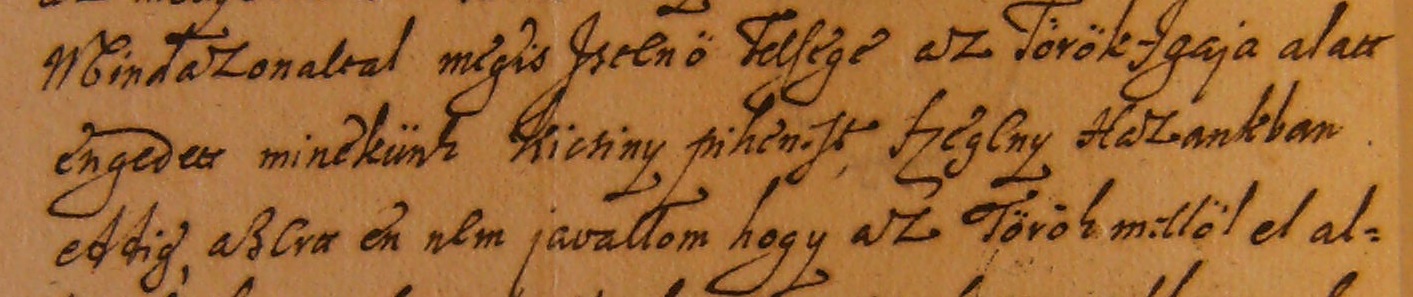 Mindazonaltal megis Isten ö Felsege az Török Igaja alatt
engedett minekünk kicsiny pihenest, szegeny Hazankban
eddig, aszert en nem javallom hogy az Török mellöl el al=